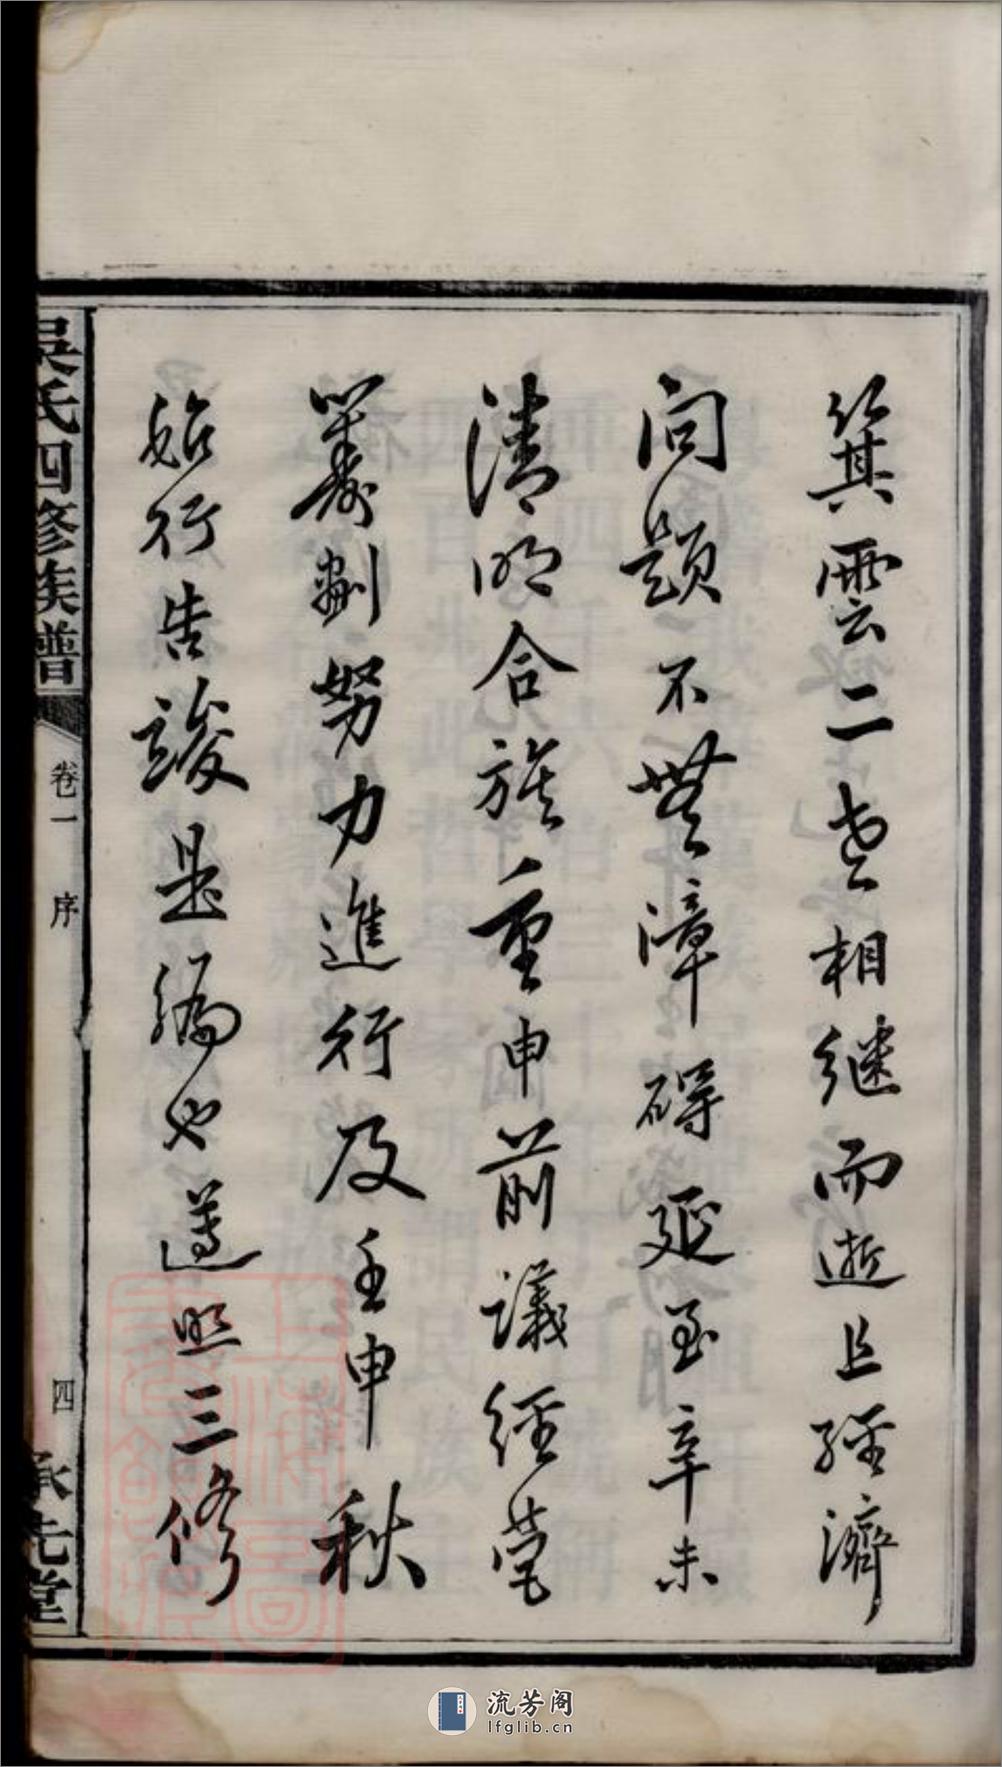 箕雲二老相継而逝且經濟
问題不無漳碍延至辛未
清明合族重申前議經营
籌劃努力進行及壬申秋
始行告竣是編也遵照三修
吳氏四修族譜
卷一 序
四
承先堂
流芳阁
lfglib.cn